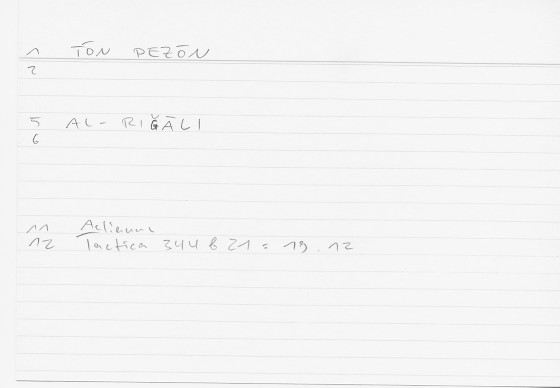 1 TŌN PEZŌN
2
5 AL-RIǦĀLI
6
11 Aelianus
12 Tactica 344 B 21 = 19.12